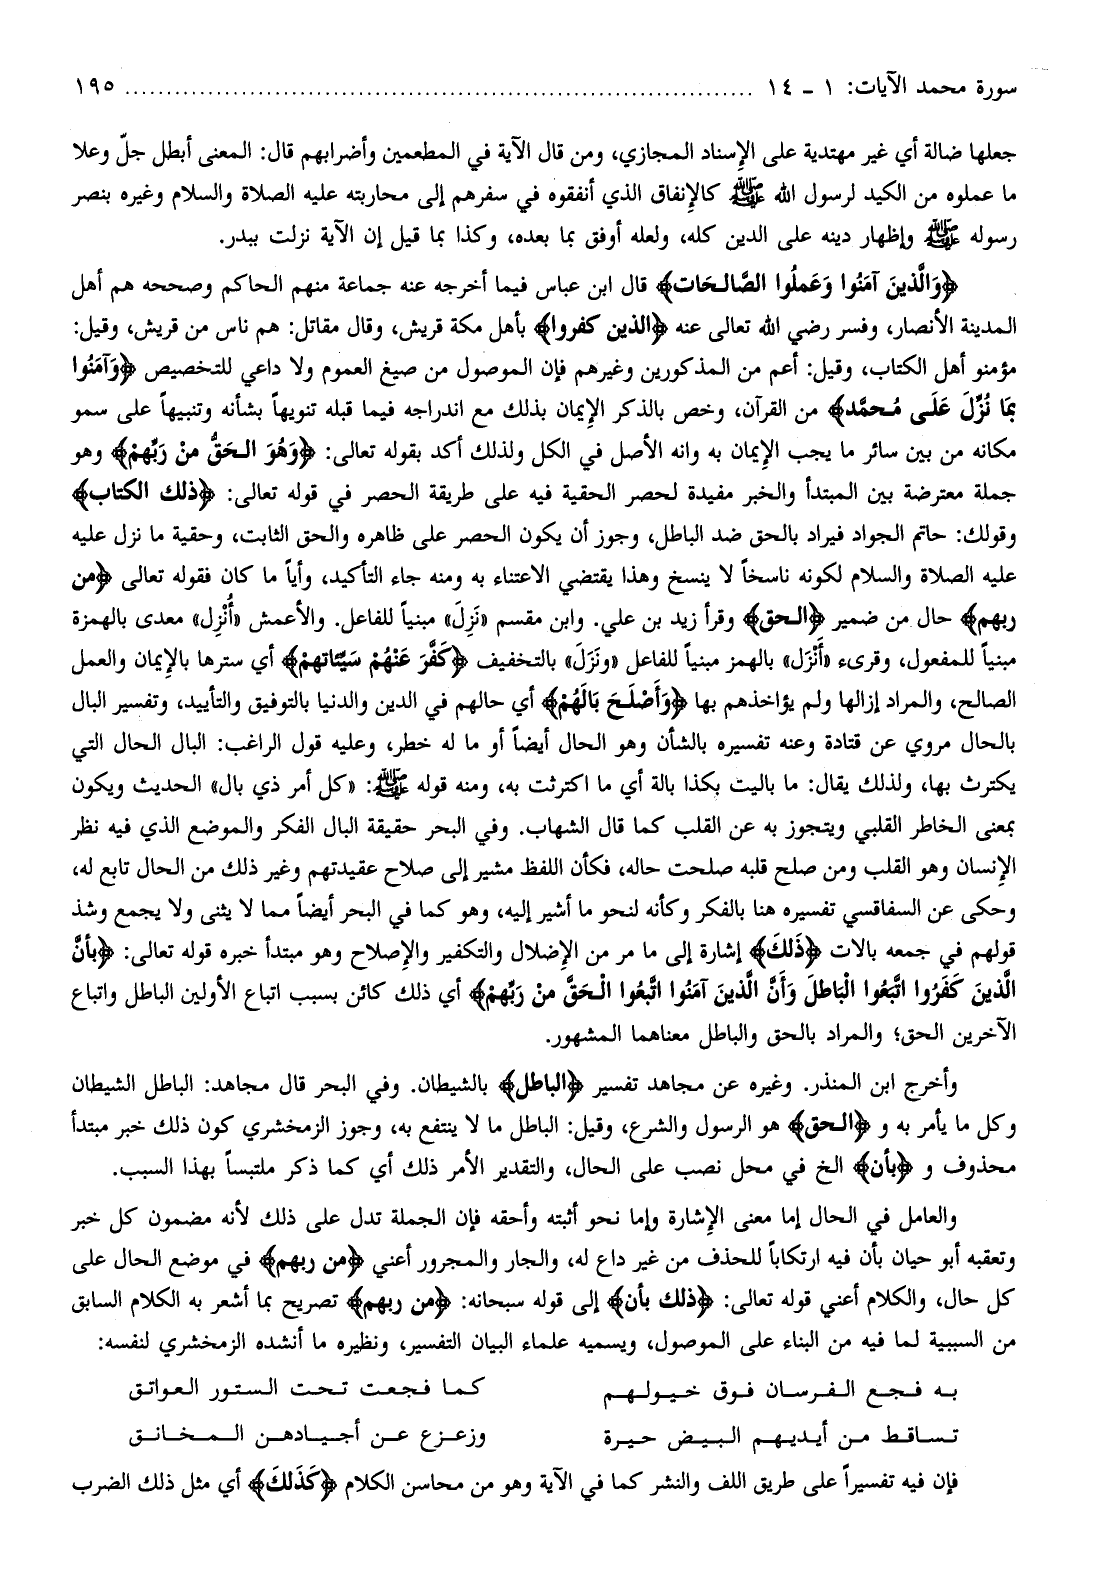 سورة محمد الآيات: ١ - ١٤ ........................................................................ ١٩٥
جعلها ضالة أي غير مهتدية على الإسناد المجازي، ومن قال الآية في المطعمين وأضرابهم قال: المعنى أبطل جلّ وعلا
ما عملوه من الكيد لرسول الله ﷺ كالإنفاق الذي أنفقوه في سفرهم إلى محاربته عليه الصلاة والسلام وغيره بنصر
رسوله ﷺ وإظهار دينه على الدين كله، ولعله أوفق بما بعده، وكذا بما قيل إن الآية نزلت ببدر.
﴿وَالَّذينَ آمَنُوا وَعَملُوا الصَّالـحَات﴾ قال ابن عباس فيما أخرجه عنه جماعة منهم الحاكم وصححه هم أهل
المدينة الأنصار، وفسر رضي الله تعالى عنه ﴿الذين كفروا﴾ بأهل مكة قريش، وقال مقاتل: هم ناس من قريش، وقيل:
مؤمنو أهل الكتاب، وقيل: أعم من المذكورين وغيرهم فإن الموصول من صيغ العموم ولا داعي للتخصيص ﴿وَآمَنُوا
بمَا نُزِّلَ عَلَى مُحمَّد﴾ من القرآن، وخص بالذكر الإيمان بذلك مع اندراجه فيما قبله تنويهاً بشأنه وتنبيهاً على سمو
مكانه من بين سائر ما يجب الإيمان به وانه الأصل في الكل ولذلك أكد بقوله تعالى: ﴿وَهُوَ الـحَقُّ منْ رَبِّهمْ﴾ وهو
جملة معترضة بين المبتدأ والخبر مفيدة لحصر الحقية فيه على طريقة الحصر في قوله تعالى: ﴿ذلك الكتاب﴾
وقولك: حاتم الجواد فيراد بالحق ضد الباطل، وجوز أن يكون الحصر على ظاهره والحق الثابت، وحقية ما نزل عليه
عليه الصلاة والسلام لكونه ناسخاً لا ينسخ وهذا يقتضي الاعتناء به ومنه جاء التأكيد، وأياً ما كان فقوله تعالى ﴿من
ربهم﴾ حال من ضمير ﴿الـحق﴾ وقرأ زيد بن علي. وابن مقسم «نَزلَ» مبنياً للفاعل. والأعمش «أُنْزِل» معدى بالهمزة
مبنياً للمفعول، وقرىء «أَنْزَل» بالهمز مبنياً للفاعل «ونَزَلَ» بالتخفيف ﴿كَفَّرَ عَنْهُمْ سَيِّئاتهمْ﴾ أي سترها بالإيمان والعمل
الصالح، والمراد إزالها ولم يؤاخذهم بها ﴿وَأَصْلَـحَ بَالَهُمْ﴾ أي حالهم في الدين والدنيا بالتوفيق والتأييد، وتفسير البال
بالحال مروي عن قتادة وعنه تفسيره بالشأن وهو الحال أيضاً أو ما له خطر، وعليه قول الراغب: البال الحال التي
يكترث بها، ولذلك يقال: ما باليت بكذا بالة أي ما اكترثت به، ومنه قوله ﷺ: «كل أمر ذي بال» الحديث ويكون
بمعنى الخاطر القلبي ويتجوز به عن القلب كما قال الشهاب. وفي البحر حقيقة البال الفكر والموضع الذي فيه نظر
الإنسان وهو القلب ومن صلح قلبه صلحت حاله، فكأن اللفظ مشير إلى صلاح عقيدتهم وغير ذلك من الحال تابع له،
وحكى عن السفاقسي تفسيره هنا بالفكر وكأنه لنحو ما أشير إليه، وهو كما في البحر أيضاً مما لا يثنى ولا يجمع وشذ
قولهم في جمعه بالات ﴿ذَلكَ﴾ إشارة إلى ما مر من الإضلال والتكفير والإصلاح وهو مبتدأ خبره قوله تعالى: ﴿بأنَّ
الَّذينَ كَفَرُوا اتَّبَعُوا الْبَاطلَ وَأَنَّ الَّذينَ آمَنُوا اتَّبعُوا الْـحَقَّ منْ رَبِّهمْ﴾ أي ذلك كائن بسبب اتباع الأولين الباطل واتباع
الآخرين الحق؛ والمراد بالحق والباطل معناهما المشهور.
وأخرج ابن المنذر. وغيره عن مجاهد تفسير ﴿الباطل﴾ بالشيطان. وفي البحر قال مجاهد: الباطل الشيطان
وكل ما يأمر به و ﴿الـحق﴾ هو الرسول والشرع، وقيل: الباطل ما لا ينتفع به، وجوز الزمخشري كون ذلك خبر مبتدأ
محذوف و ﴿بأن﴾ الخ في محل نصب على الحال، والتقدير الأمر ذلك أي كما ذكر ملتبساً بهذا السبب.
والعامل في الحال إما معنى الإشارة وإما نحو أثبته وأحقه فإن الجملة تدل على ذلك لأنه مضمون كل خبر
وتعقبه أبو حيان بأن فيه ارتكاباً للحذف من غير داع له، والجار والمجرور أعني ﴿من ربهم﴾ في موضع الحال على
كل حال، والكلام أعني قوله تعالى: ﴿ذلك بأن﴾ إلى قوله سبحانه: ﴿من ربهم﴾ تصريح بما أشعر به الكلام السابق
من السببية لما فيه من البناء على الموصول، ويسميه علماء البيان التفسير، ونظيره ما أنشده الزمخشري لنفسه:
به فـجع الـفـرسان فوق خـيـولـهـم كـمـا فـجعت تـحـت السـتـور العـواتق
تـسـاقـط مـن أيـديـهـم الـبـيـض حـيـرة وزعـزع عـن أجـيـادهـن الـمـخـانـق
فإن فيه تفسيراً على طريق اللف والنشر كما في الآية وهو من محاسن الكلام ﴿كَذَلكَ﴾ أي مثل ذلك الضرب